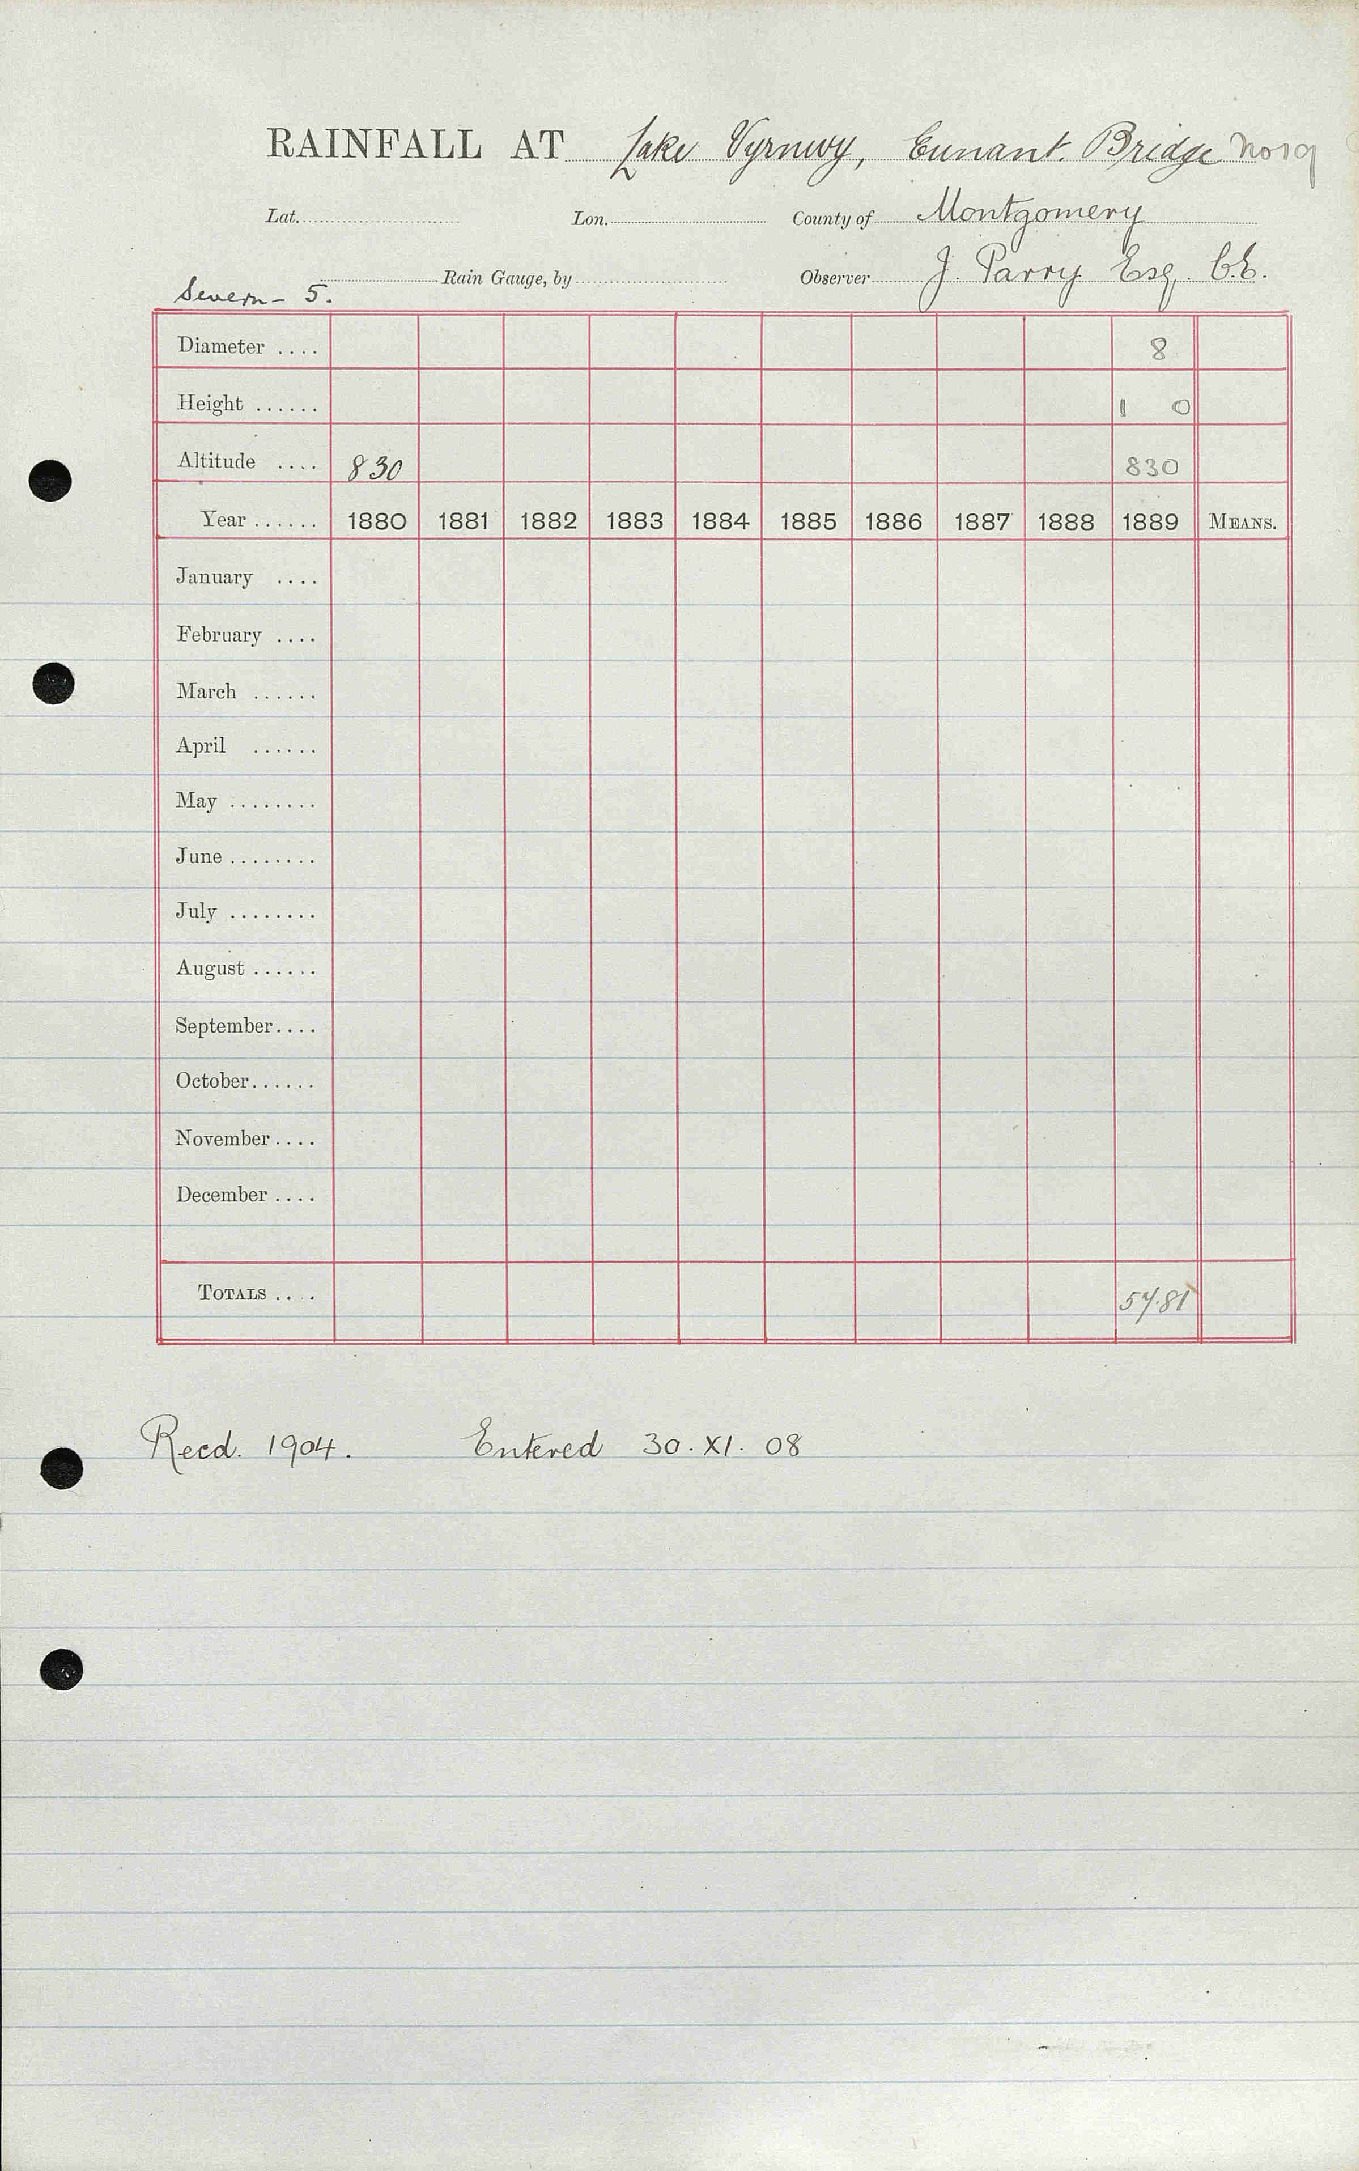 RAINFALL AT Lake Vyrnwy, Eunant Bridge No 19
Lat. Lon. County of Montgomery
Rain Gauge, by Observer J. Parry Esq. C.E.
Severn - 5.
Diameter .... 8
Height ...... 1 0
Altitude .... 830 830
Year ...... 1880 1881 1882 1883 1884 1885 1886 1887 1888 1889 MEANS.
January ....
February ....
March ......
April ......
May ........
June ........
July ........
August ......
September....
October......
November....
December....
TOTALS .... 57.81
Recd. 1904. Entered 30. XI. 08